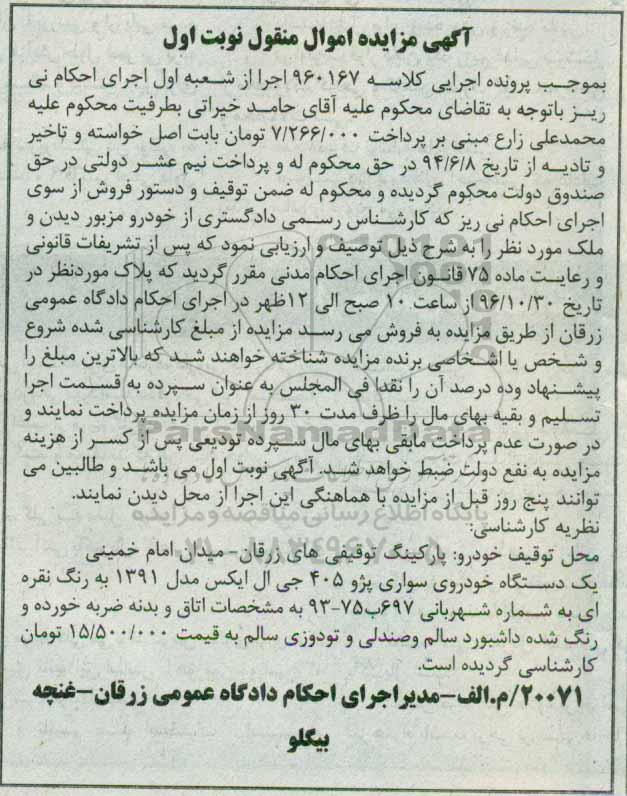 آگهی مزایده اموال منقول نوبت اول
بموجب پرونده اجرایی کلاسه ۹۶۰۱۶۷ اجرا از شعبه اول اجرای احکام نی
ریز باتوجه به تقاضای محکوم علیه آقای حامد خیراتی بطرفیت محکوم علیه
محمدعلی زارع مبنی بر پرداخت ۷/۲۶۶/۰۰۰ تومان بابت اصل خواسته و تاخیر
و تادیه از تاریخ ۹۴/۶/۸ در حق محکوم له و پرداخت نیم عشر دولتی در حق
صندوق دولت محکوم گردیده و محکوم له ضمن توقیف و دستور فروش از سوی
اجرای احکام نی ریز که کارشناس رسمی دادگستری از خودرو مزبور دیدن و
ملک مورد نظر را به شرح ذیل توصیف و ارزیابی نمود که پس از تشریفات قانونی
و رعایت ماده ۷۵ قانون اجرای احکام مدنی مقرر گردید که پلاک موردنظر در
تاریخ ۹۶/۱۰/۳۰ از ساعت ۱۰ صبح الی ۱۲ظهر در اجرای احکام دادگاه عمومی
زرقان از طریق مزایده به فروش می رسد مزایده از مبلغ کارشناسی شده شروع
و شخص یا اشخاصی برنده مزایده شناخته خواهند شد که بالاترین مبلغ را
پیشنهاد وده درصد آن را نقدا فی المجلس به عنوان سپرده به قسمت اجرا
تسلیم و بقیه بهای مال را ظرف مدت ۳۰ روز از زمان مزایده پرداخت نمایند و
در صورت عدم پرداخت مابقی بهای مال سپرده تودیعی پس از کسر از هزینه
مزایده به نفع دولت ضبط خواهد شد. آگهی نوبت اول می باشد و طالبین می
توانند پنج روز قبل از مزایده با هماهنگی این اجرا از محل دیدن نمایند.
نظریه کارشناسی:
محل توقیف خودرو: پارکینگ توقیفی های زرقان- میدان امام خمینی
یک دستگاه خودروی سواری پژو ۴۰۵ جی ال ایکس مدل ۱۳۹۱ به رنگ نقره
ای به شماره شهربانی ۶۹۷ب۷۵-۹۳ به مشخصات اتاق و بدنه ضربه خورده و
رنگ شده داشبورد سالم وصندلی و تودوزی سالم به قیمت ۱۵/۵۰۰/۰۰۰ تومان
کارشناسی گردیده است.
۲۰۰۷۱/م.الف-مدیراجرای احکام دادگاه عمومی زرقان-غنچه
بیگلو
ParsNamadData
پایگاه اطلاع رسانی مناقصه و مزایده